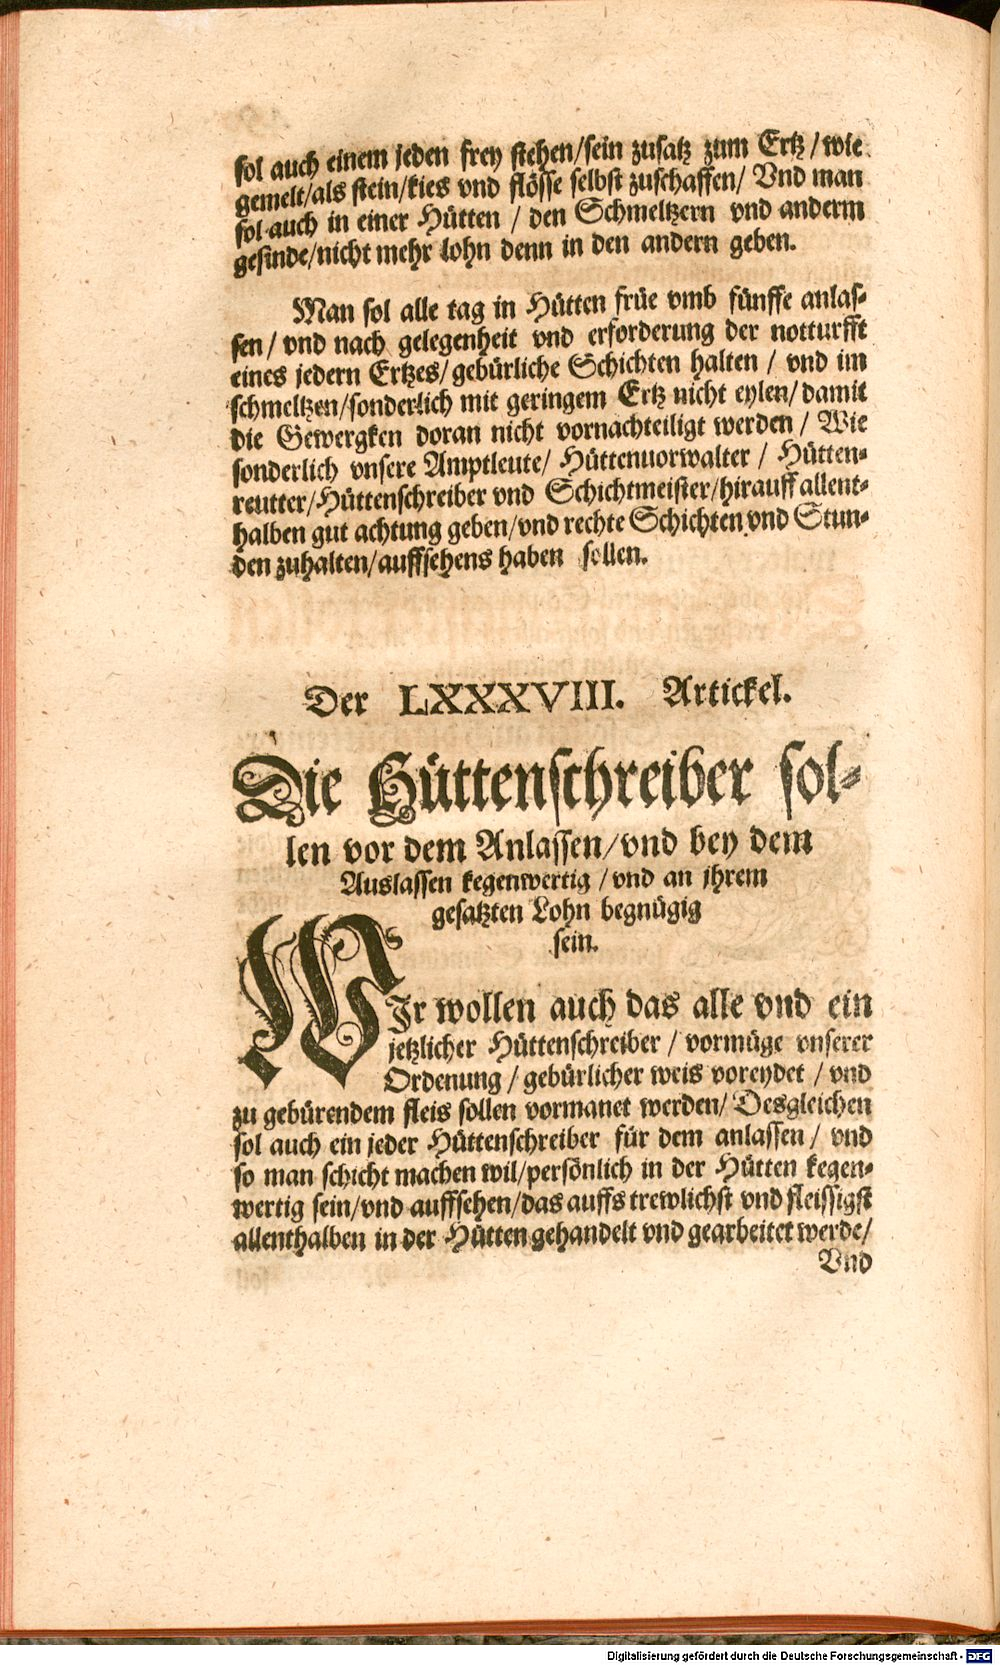 sol auch einem jeden frey stehen/sein zusatz zum Ertz / wie
gemelt/als stein/kies vnd flösse selbst zuschaffen/ Vnd man
sol auch in einer Hütten / den Schmeltzern vnd anderm
gesinde/nicht mehr lohn denn in den andern geben.
Man sol alle tag in Hütten früe vmb fünffe anlas-
sen / vnd nach gelegenheit vnd erforderung der notturfft
eines jedern Ertzes/ gebürliche Schichten halten / vnd im
schmeltzen/sonderlich mit geringem Ertz nicht eylen/ damit
die Gewergken doran nicht vornachteiligt werden / Wie
sonderlich vnsere Amptleute/ Hüttenuorwalter / Hütten-
reutter/Hüttenschreiber vnd Schichtmeister/hirauff allent-
halben gut achtung geben/vnd rechte Schichten vnd Stun-
den zuhalten/auffsehens haben sollen.
Der LXXXVIII. Artickel.
Die Hüttenschreiber sol-
len vor dem Anlassen/vnd bey dem
Auslassen kegenwertig / vnd an jhrem
gesatzten Lohn begnügig
sein.
WIr wollen auch das alle vnd ein
jetzlicher Hüttenschreiber / vormüge vnserer
Ordenung / gebürlicher weis voreydet / vnd
zu gebürendem fleis sollen vormanet werden/ Desgleichen
sol auch ein jeder Hüttenschreiber für dem anlassen / vnd
so man schicht machen wil/persönlich in der Hütten kegen-
wertig sein/vnd auffsehen/das auffs trewlichst vnd fleissigst
allenthalben in der Hütten gehandelt vnd gearbeitet werde/
Vnd
Digitalisierung gefördert durch die Deutsche Forschungsgemeinschaft - DFG